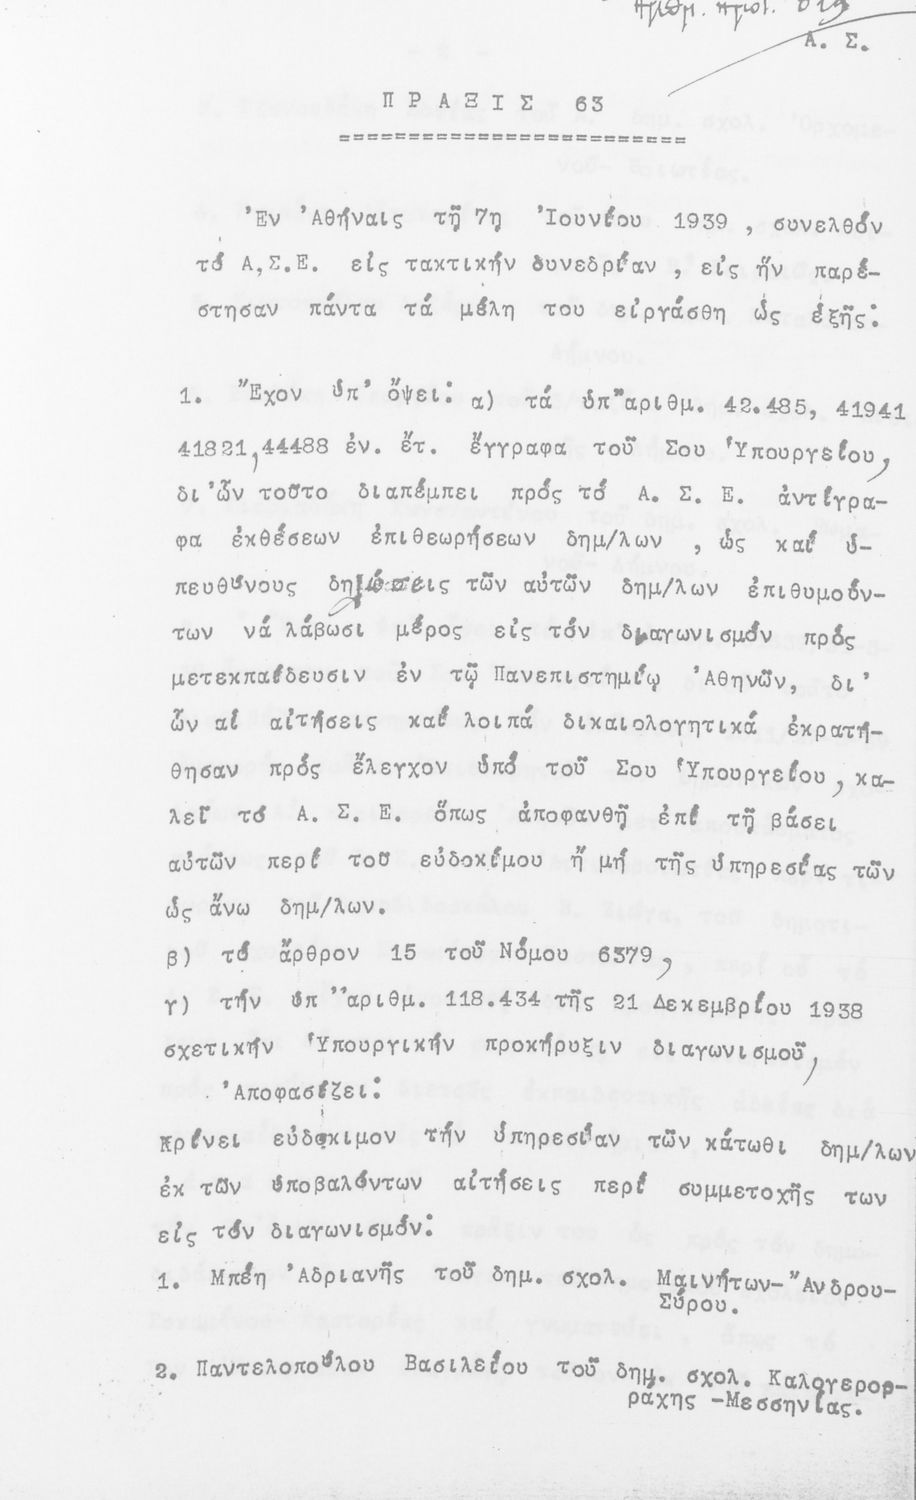 Ἀριθμ. πρωτ. 819
Α. Σ.
Π Ρ Α Ξ Ι Σ 63
==========================
Ἐν Ἀθήναις τῇ 7ῃ Ἰουνίου 1939 , συνελθόν
τό Α,Σ.Ε. εἰς τακτικήν συνεδρίαν , εἰς ἥν παρέ-
στησαν πάντα τά μέλη του εἰργάσθη ὡς ἑξῆς:
1. Ἔχον ὑπ' ὄψει: α) τά ὑπ"αριθμ. 42.485, 41941
41821,44488 ἐν. ἔτ. ἔγγραφα τοῦ Σου Ὑπουργείου,
δι'ὧν τοῦτο διαπέμπει πρός τό Α. Σ. Ε. ἀντίγρα-
φα ἐκθέσεων ἐπιθεωρήσεων δημ/λων , ὡς καί ὑ-
πευθύνους δηλώσεις τῶν αὐτῶν δημ/λων ἐπιθυμούν-
των νά λάβωσι μέρος εἰς τόν διαγωνισμόν πρός
μετεκπαίδευσιν ἐν τῷ Πανεπιστημίῳ Ἀθηνῶν, δι'
ὧν αἱ αἰτήσεις καί λοιπά δικαιολογητικά ἐκρατή-
θησαν πρός ἔλεγχον ὑπό τοῦ Σου Ὑπουργείου, κα-
λεῖ τό Α. Σ. Ε. ὅπως ἀποφανθῇ ἐπί τῇ βάσει
αὐτῶν περί του εὐδοκίμου ἤ μή τῆς ὑπηρεσίας τῶν
ὡς ἄνω δημ/λων.
β) τό ἄρθρον 15 τοῦ Νόμου 6379,
γ) τήν ὑπ "αριθμ. 118.434 τῆς 21 Δεκεμβρίου 1938
σχετικήν Ὑπουργικήν προκήρυξιν διαγωνισμοῦ,
Ἀποφασίζει:
Κρίνει εὐδόκιμον τήν ὑπηρεσίαν τῶν κάτωθι δημ/λων
ἐκ τῶν ὑποβαλόντων αἰτήσεις περί συμμετοχῆς των
εἰς τόν διαγωνισμόν:
1. Μπέη Ἀδριανῆς τοῦ δημ. σχολ. Μαινήτων-Ἄνδρου-
Σύρου.
2. Παντελοπούλου Βασιλείου τοῦ δημ. σχολ. Καλογερορ-
ράχης -Μεσσηνίας.